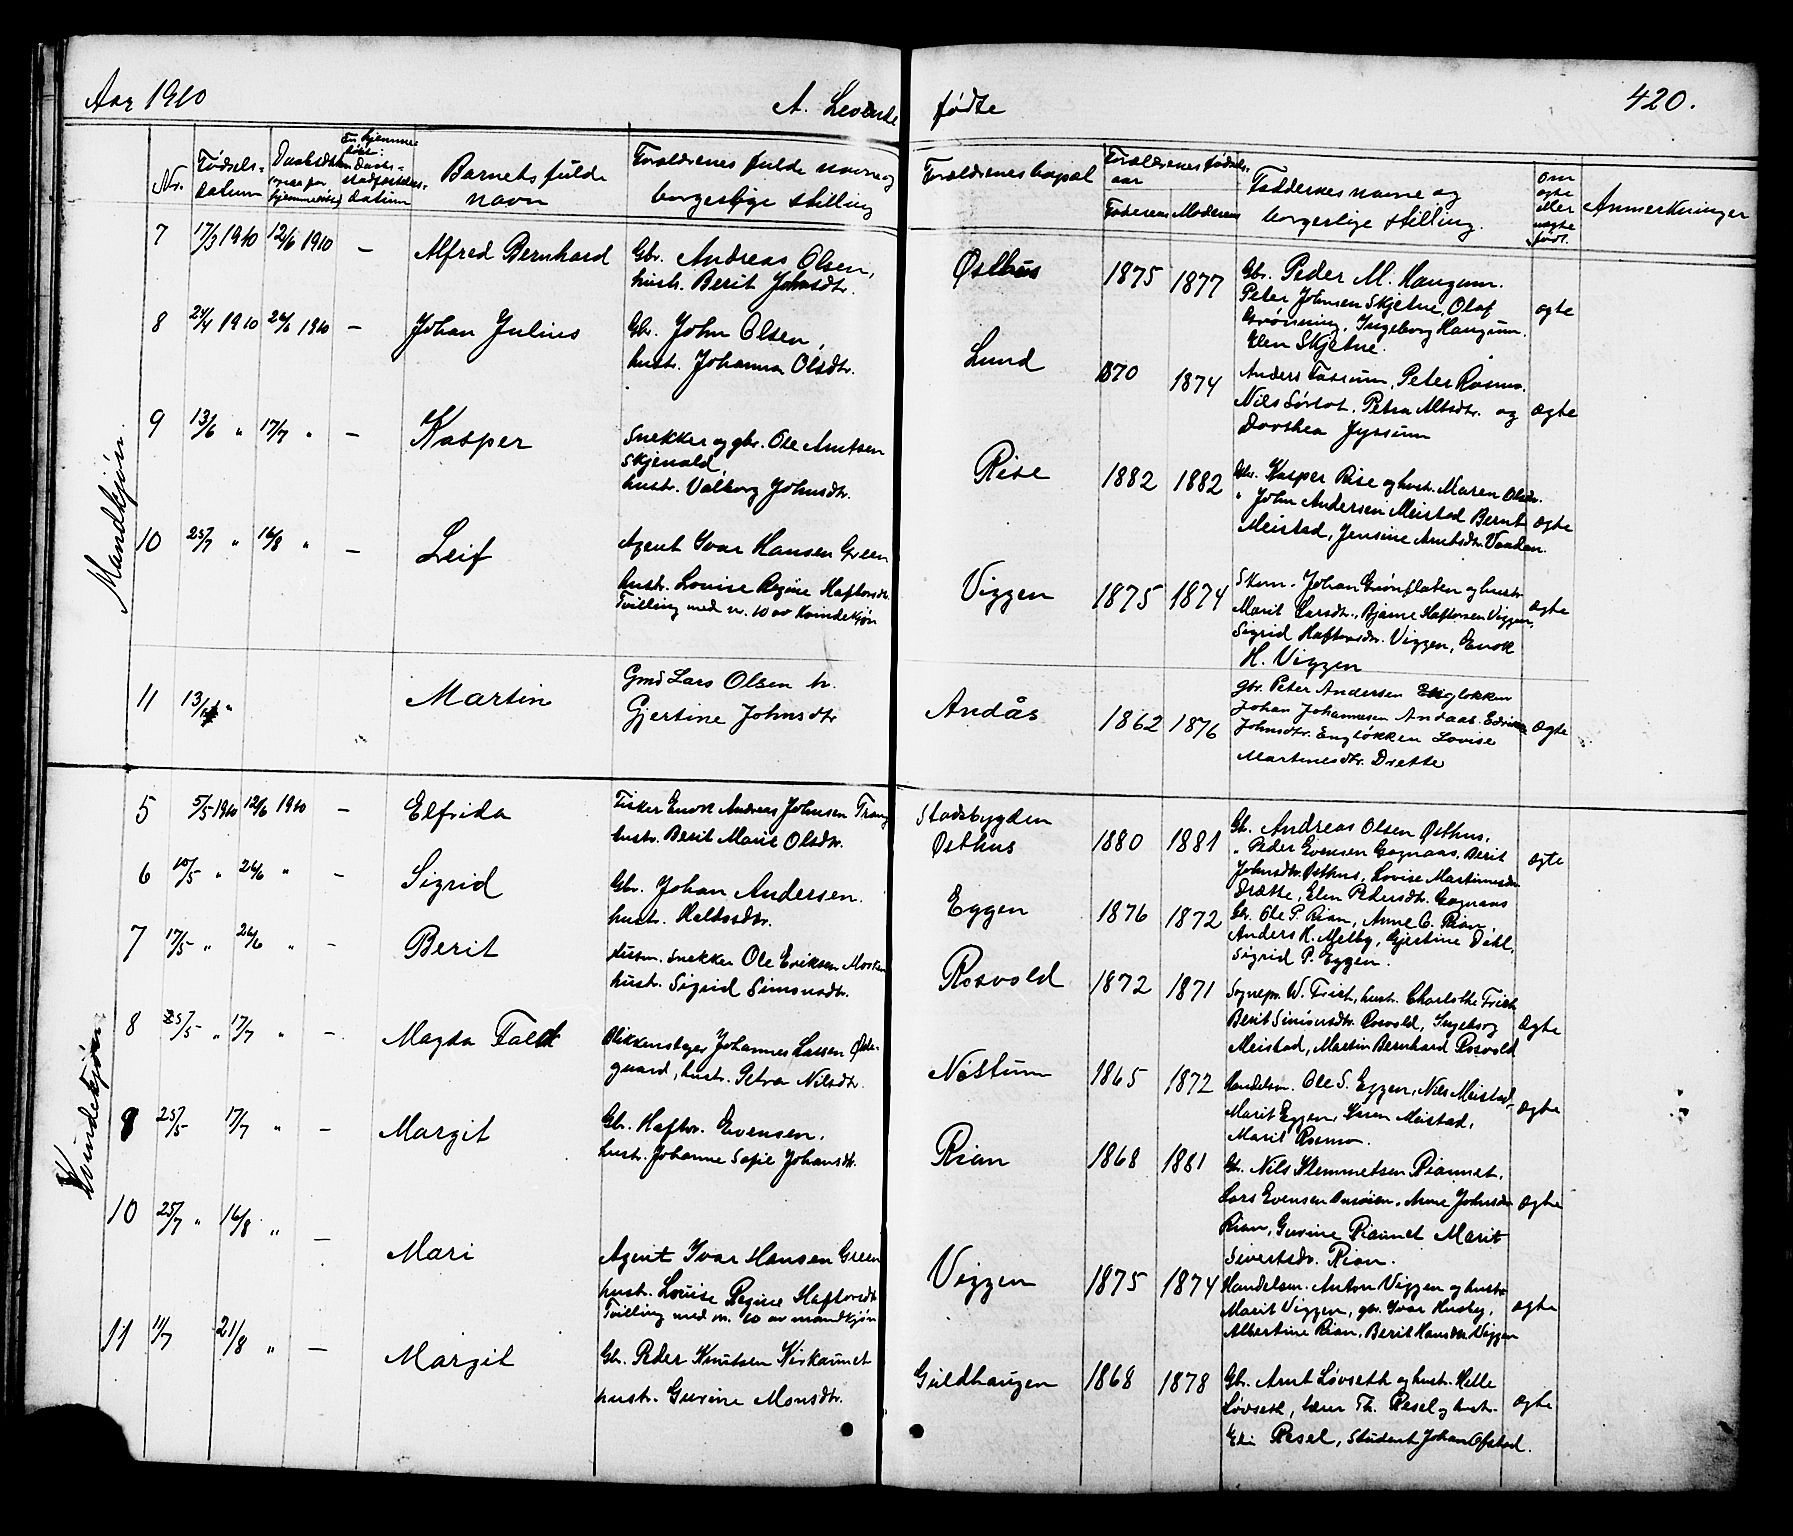 Aar 1910
A. Levende fødte
420.
Nr.
Fødsels-
datum
Daabsdatum
hjemmedøbt
datum
Barnets fulde
navn
Forældrenes fulde navne og
borgerlige stilling
Forældrenes bopæl
Forældrenes fødsels-
aar
Faderens
Moderens
Faddernes navne og
borgerlige stilling.
Om
ægte
eller
uægte
født.
Anmerkninger
Mandkjøn.
7 17/3 1910 12/6 1910 — Alfred Bernhard Gbr. Andreas Olsen,
hustr. Berit Johnsdtr.
Østhus 1875 1877 Gbr. Peder M. Haugum.
Peter Johnsen Skjetne, Olaf
Grønning, Ingeborg Haugum.
Elen Skjetne.
ægte
8 24/4 1910 26/6 1910 — Johan Julius Gbr. John Olsen,
hustr. Johanna Olsdtr.
Lund 1870 1874 Anders Fossum, Peter Rosmo.
Nils Sørlot. Petra Altsdtr. og
Dorthea Jyssum
Ægte
9 13/6 " 17/7 " — Kasper Snekker og gbr. Ole Arntsen
Skjenald,
hustr. Valborg Johnsdtr.
Rise 1882 1882 Gbr. Kasper Rise og hustr. Maren Olsdtr.
" John Andersen Meistad Bernt
Meistad, Jensine Arntsdtr. Vaadan.
Ægte
10 25/7 " 16/8 " — Leif Agent Ivar Hansen Green
hustr. Louise Regine Haftorsdtr.
Tvilling med nr. 10 av kvindekjøn
Viggen 1875 1874 Skom. Johan Grønflaten og hustr
Marit Larsdtr., Bjarne Haftorsen Viggen,
Sigrid Haftorsdtr. Viggen, Enok
H. Viggen
Ægte
11 13/ " Martin Gmd Lars Olsen h.
Gjertine Johnsdtr
Andås 1862 1876 gbr. Peter Andersen Engløkken
Johan Johannesen Andaas.
Johnsdtr. Engløkken Lovise
Martinesdtr. Drette
Ægte
Kvindekjøn
5 5/5 1910 12/6 1910 — Elfrida Fisker Enok Andreas Johnsen
hustr. Berit Marie Olsdtr.
Stadsbygden
Østhus
1880 1881 Gb. Andreas Olsen Østhus,
" Peder Evensen Gagnaas, Berit
Johnsdtr. Østhus, Lovise Martinusdtr
Drætte, Elen Pedersdtr. Gagnaas
ægte
6 10/5 " 26/6 " — Sigrid Gbr. Johan Andersen.
hustr.
Eggen 1876 1872 Gb. Ole P. Rian, Anne O. Rian,
Anders H. Melby, Gjertine Dahl,
Sigrid P. Eggen.
7 17/5 " 26/6 " — Berit Husm. snekker Ole Eriksen Morken
hustr. Sigrid Simonsdtr.
Rosvold 1872 1871 Sognepr. W. Frich, hustr. Charlothe Frich
Berit Simonsdtr. Rosvold, Ingeborg
Meistad, Martin Bernhard Rosvold
Ægte
8 25/5 " 17/7 " — Magda Blikkenslager Johannes Larsen Øde-
gaard, hustr. Petra Nilsdtr.
Nøstum 1865 1872 Handelsm. Ole S. Eggen, Nils Meistad,
Marit Eggen, Karen Meistad,
Marit Rosmo.
Ægte
25/5 17/7 " — Margit Gbr. Haftor. Evensen.
hustr. Johanne Sofie Johansdtr.
Rian 1868 1881 Gb. Nils Klemmetsen Riaunet,
Lars Evensen, Anne Johnsdtr
Rian, Gurine Riaunet Marit
Sivertsdtr. Rian.
Ægte
10 25/7 " 16/8 " — Mari Agent Ivar Hansen Green
hustr. Louise Regine Haftorsdtr
Tvilling med nr. 10 av mandkjøn
Viggen 1875 1874 Handelsm. Anton Viggen og hustr
Marit Viggen, gbr. Ivar Husby,
Albertine Rian, Berit Hansdtr. Viggen
ægte
11 11/7 21/8 " — Margit Gbr. Peder Knutsen Kirkaunet
hustr. Gurine Monsdtr.
Guldhaugen 1868 1878 Gbr. Arnt Løvseth og hustr. Helle
Løvseth, lærer Th. Resel og hustr.
Eli Resel, Student Johan Ofstad.
ægte